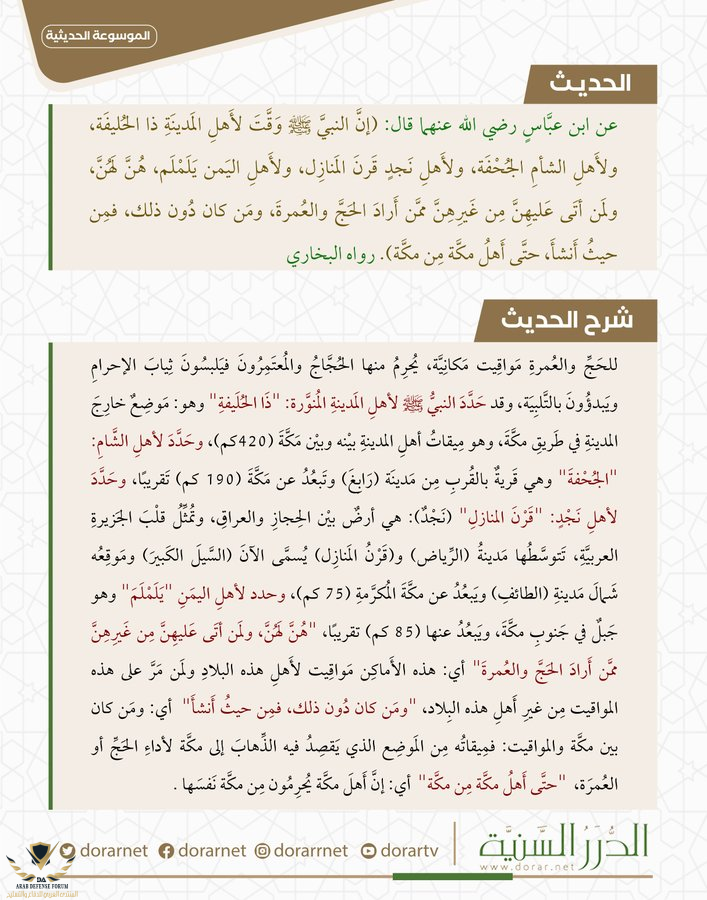 الموسوعة الحديثية
الحديث
عن ابن عبَّاسٍ رضي الله عنهما قال: (إنَّ النبيَّ ﷺ وَقَّتَ لأَهلِ المَدينَةِ ذا الحُليفَة،
ولأَهلِ الشأمِ الجُحْفَة، ولأَهلِ نَجدٍ قرنَ المَنازِل، ولأَهلِ اليَمن يَلَمْلَم، هُنَّ لَهُنَّ،
ولَمن أتَى عَليهِنَّ مِن غَيرِهِنَّ ممَّن أَرادَ الحَجَّ والعُمرةَ، ومَن كان دُون ذلك، فمِن
حيثُ أَنشأَ، حتَّى أَهلُ مكَّة مِن مكَّة). رواه البخاري
شرح الحديث
للحَجِّ والعُمرةِ مَواقيت مَكانِيَّة، يُحرِمُ منها الحُجَّاجُ والمُعتَمِرُونَ فيَلبسُونَ ثِيابَ الإحرامِ
ويَبدؤُونَ بالتَّلبِيَة، وقد حَدَّدَ النبيُّ ﷺ لأَهلِ المَدينةِ المُنوَّرة: "ذَا الحُلَيفةِ" وهو: مَوضِعٌ خارِجَ
المدينةِ في طَريقِ مكَّةَ، وهو مِيقاتُ أهلِ المدينةِ بيْنه وبيْن مَكَّةَ (420كم)، وحَدَّدَ لأهلِ الشَّامِ:
"الجُحْفةَ" وهي قَريةٌ بالقُربِ مِن مَدينَة (رَابِغَ) وتَبعُدُ عن مَكَّةَ (190 كم) تَقريبًا، وحَدَّدَ
لأهلِ نَجْدٍ: "قَرْنَ المنازلِ" (نَجْدٌ): هي أرضٌ بيْن الحِجازِ والعراقِ، وتُمثِّلُ قلْبَ الجَزيرةِ
العربيَّةِ، تَتوسَّطُها مَدينةُ (الرِّياض) و(قَرْنُ المَنازِل) يُسمَّى الآنَ (السَّيلَ الكَبيرَ) ومَوقِعُه
شَمالَ مَدينةِ (الطائفِ) ويَبعُدُ عن مكَّةَ المُكرَّمةِ (75 كم)، وحدد لأهلِ اليمَنِ "يَلَمْلَمَ" وهو
جَبلٌ في جَنوبِ مكَّةَ، ويَبعُدُ عنها (85 كم) تقريبًا، "هُنَّ لَهُنَّ، ولَمن أتَى عَليهِنَّ مِن غَيرِهِنَّ
ممَّن أَرادَ الحَجَّ والعُمرةَ" أي: هذه الأَماكِن مَواقِيت لأَهلِ هذه البلادِ ولَمن مَرَّ على هذه
المواقيت مِن غيرِ أَهلِ هذه البِلاد، "ومَن كان دُون ذلك، فمِن حيثُ أَنشأَ" أي: ومَن كان
بين مكَّة والمواقيت: فمِيقاتُه مِن المَوضِع الذي يَقصِدُ فيه الذِّهابَ إلى مكَّة لأَداءِ الحَجِّ أو
العُمرَة، "حتَّى أَهلُ مكَّة مِن مكَّة" أي: إنَّ أَهلَ مكَّة يُحرِمُون مِن مكَّة نَفسَها .
dorarnet dorarnet dorarrnet dorartv
الدُّرَرُ السَّنِيَّة
www.dorar.net
DA
ARAB DEFENSE FORUM
المنتدى العربي للدفاع والتسليح